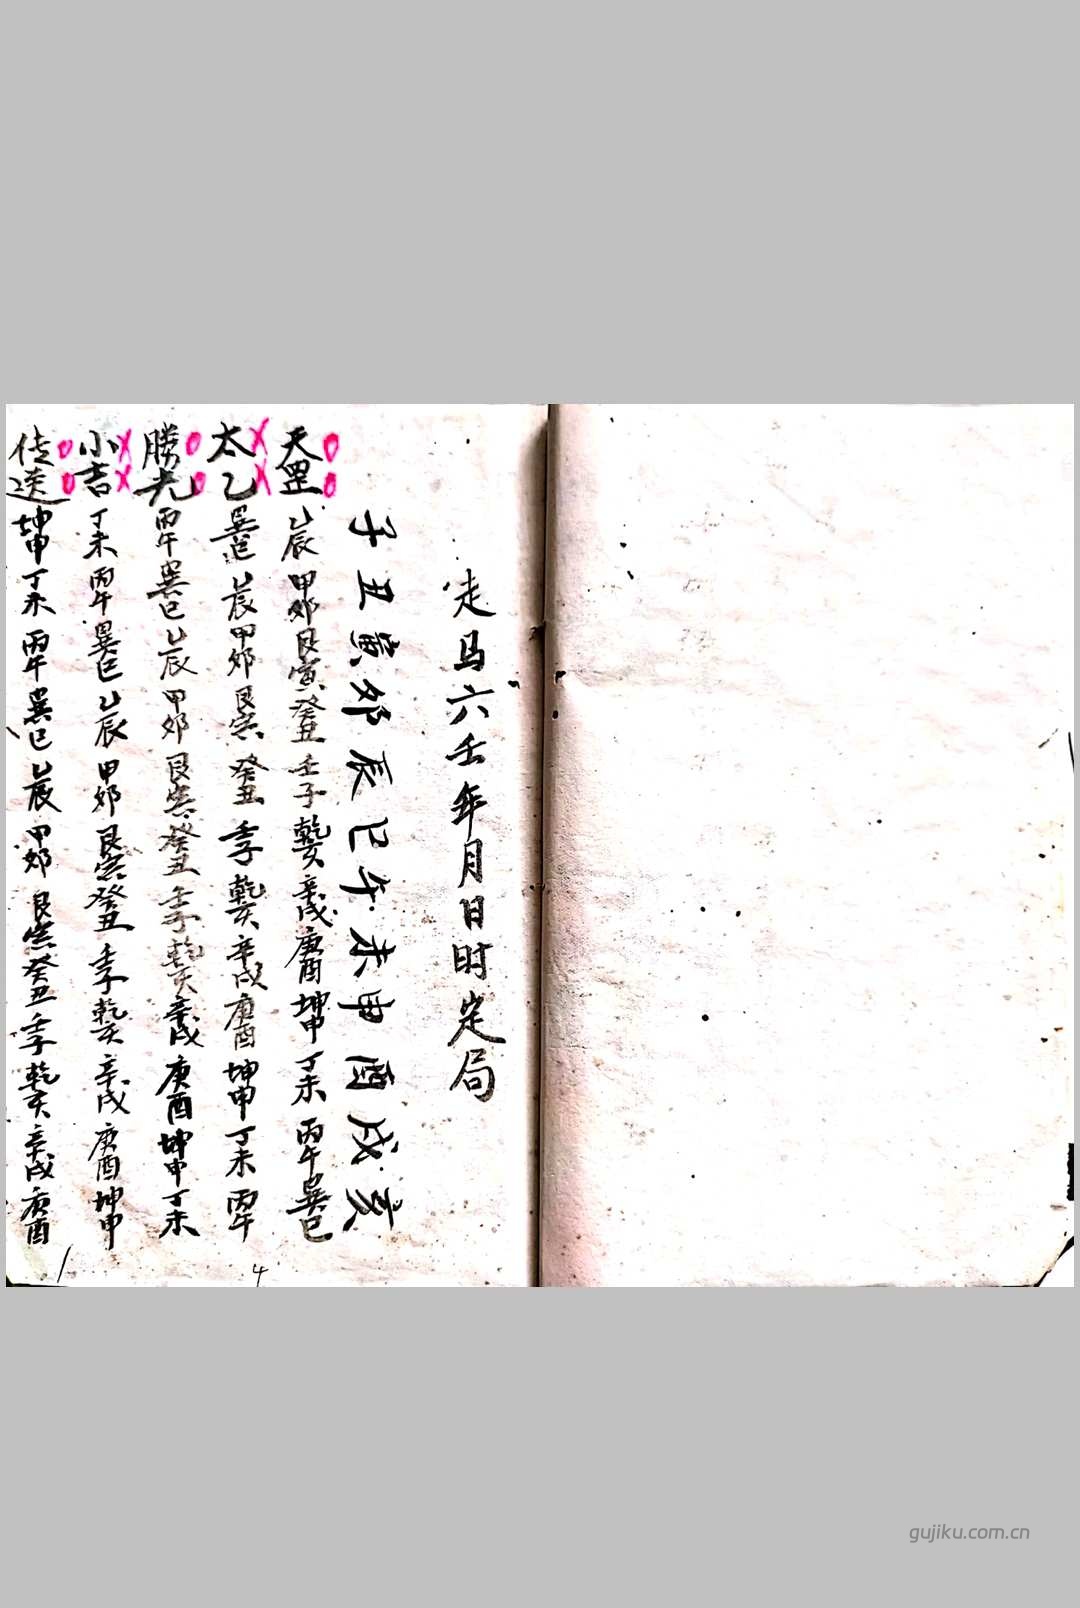 走马六壬年月日时定局
子丑寅卯辰巳午未申酉戌亥
天罡 乙辰 甲卯 艮寅 癸丑 壬子 乾亥 辛戌 庚酉 坤申 丁未 丙午 巽巳
太乙 巽巳 乙辰 甲卯 艮寅 癸丑 壬子 乾亥 辛戌 庚酉 坤申 丁未 丙午
勝光 丙午 巽巳 乙辰 甲卯 艮寅 癸丑 壬子 乾亥 辛戌 庚酉 坤申 丁未
小吉 丁未 丙午 巽巳 乙辰 甲卯 艮寅 癸丑 壬子 乾亥 辛戌 庚酉 坤申
传送 坤申 丁未 丙午 巽巳 乙辰 甲卯 艮寅 癸丑 壬子 乾亥 辛戌 庚酉
4
1
gujiku.com.cn